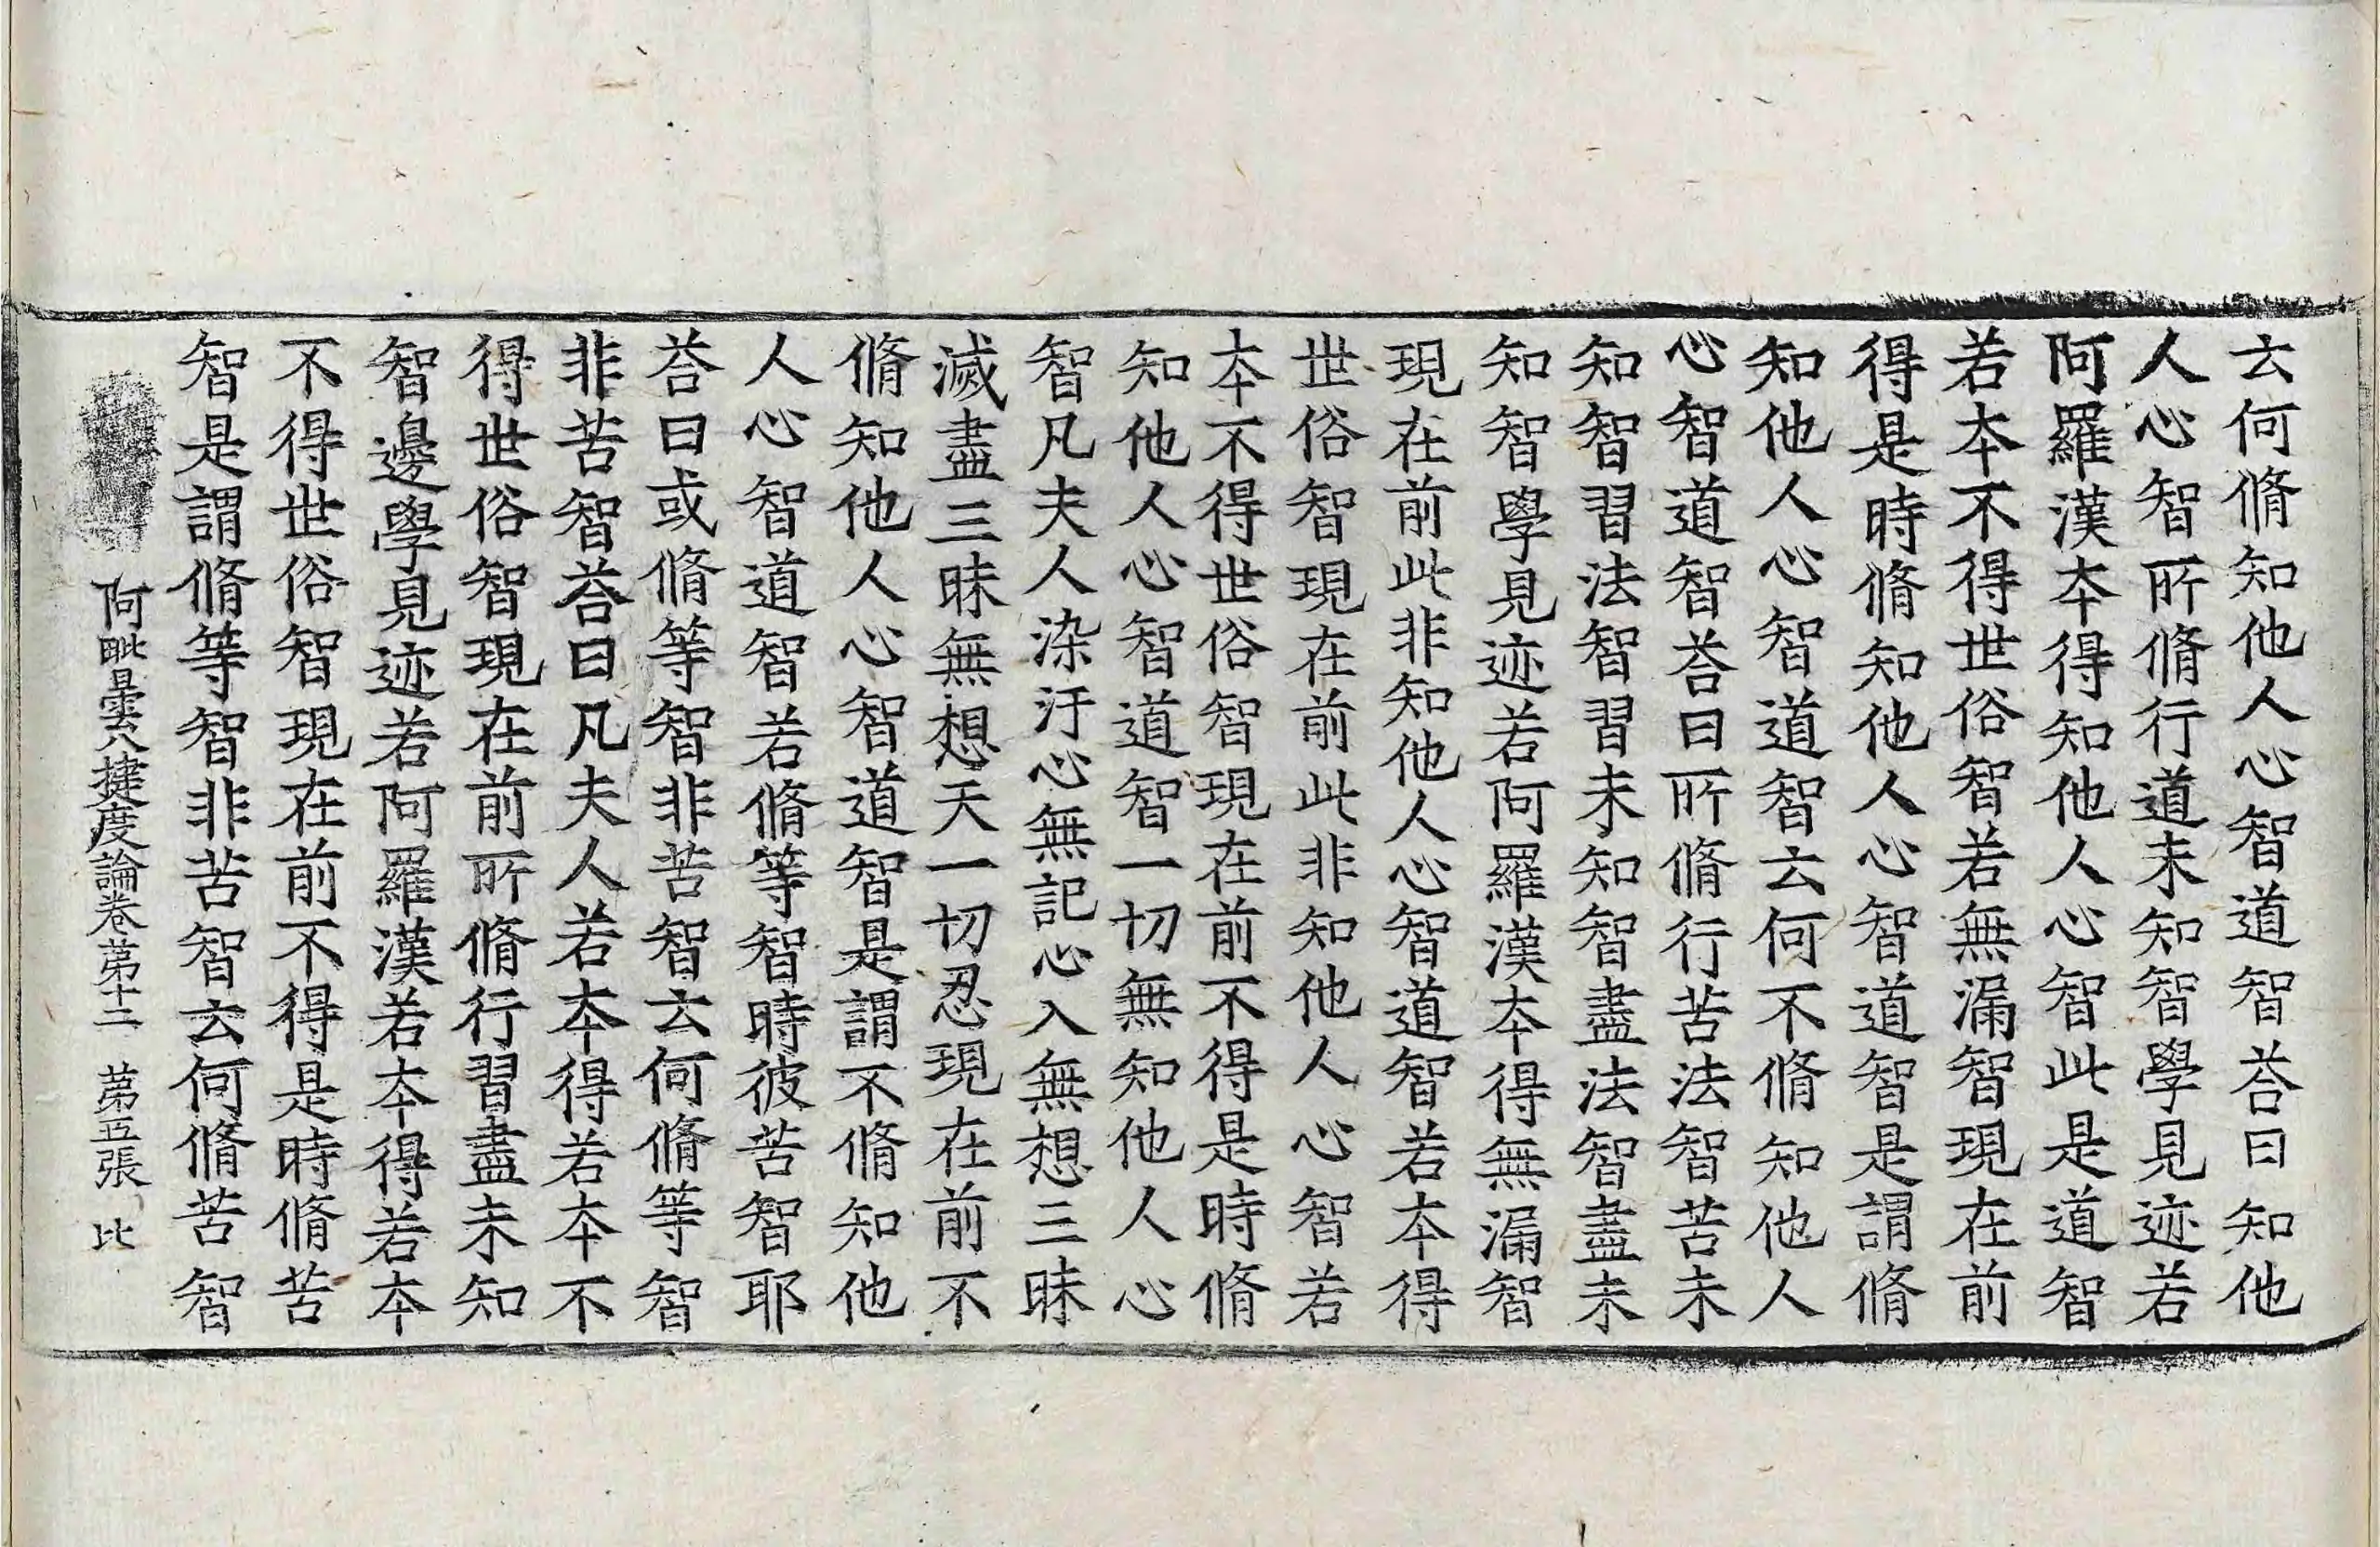 云何脩知他人心智道智荅曰知他
人心智所脩行道未知智學見迹若
阿羅漢夲得知他人心智此是道智
若夲不得世俗智若無漏智現在前
得是時脩知他人心智道智是謂脩
知他人心智道智云何不脩知他人
心智道智荅曰所脩行苦法智苦未
知智習法智習未知智盡法智盡未
知智學見迹若阿羅漢夲得無漏智
現在前此非知他人心智道智若夲得
世俗智現在前此非知他人心智若
夲不得世俗智現在前不得是時脩
知他人心智道智一切無知他人心
智凡夫人染汙心無記心入無想三昧
滅盡三昧無想天一切忍現在前不
脩知他人心智道智是謂不脩知他
人心智道智若脩等智時彼苦智耶
荅曰或脩等智非苦智云何脩等智
非苦智荅曰凡夫人若夲得若夲不
得世俗智現在前所脩行習盡未知
智邊學見迹若阿羅漢若夲得若夲
不得世俗智現在前不得是時脩苦
智是謂脩等智非苦智云何脩苦智
阿毗曇八揵度論卷苐十二 苐五張 比